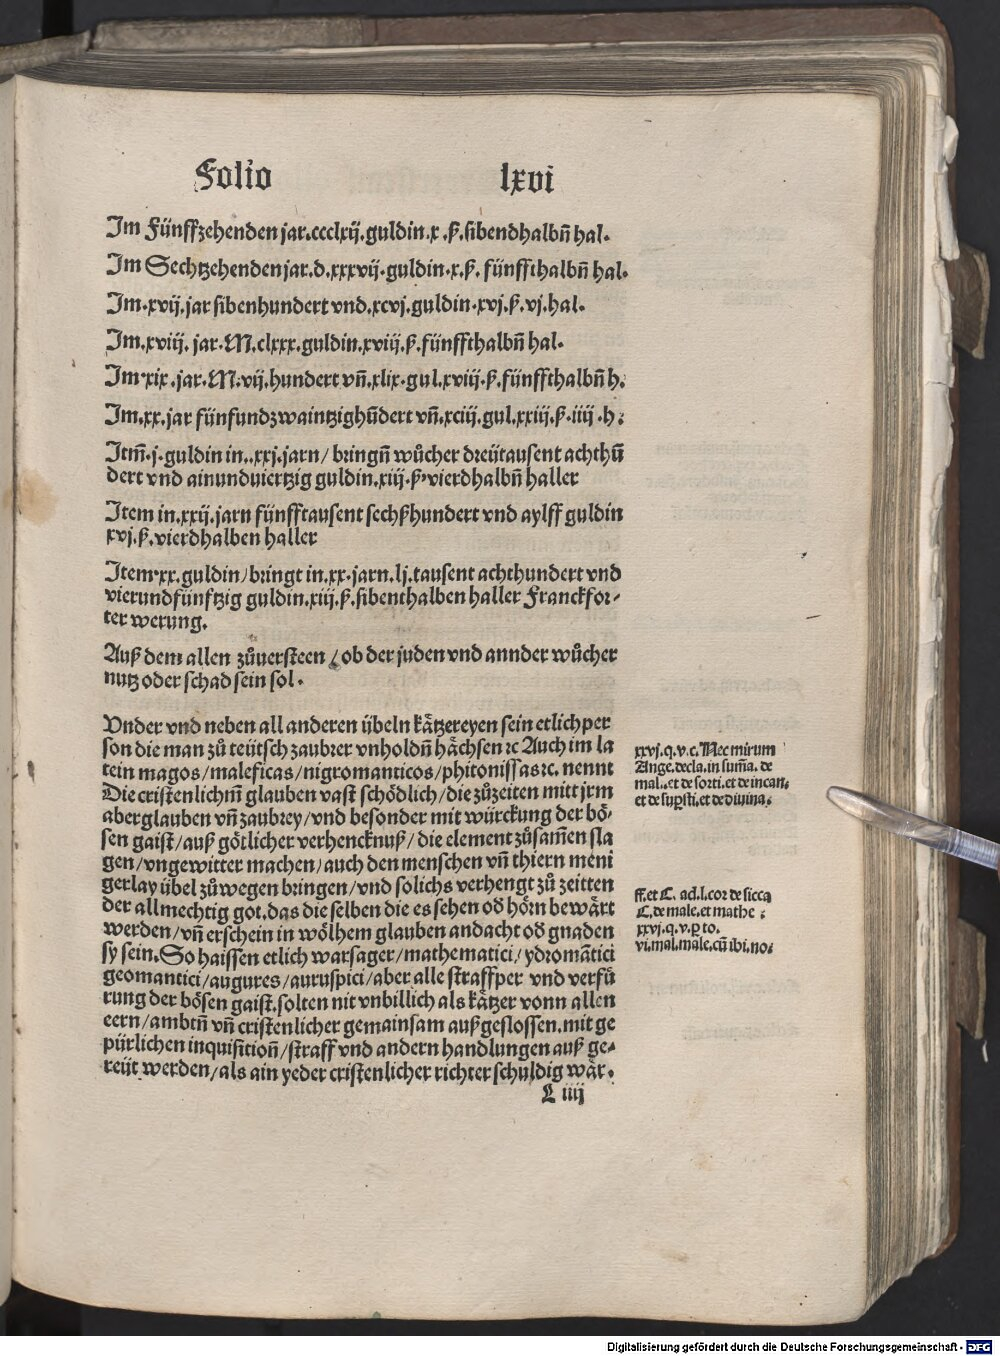 Folio lxvi
Im Fünffzehenden jar.ccclxij.guldin.x.ß.sibendhalbn̄ hal.
Im Sechtzehenden jar.d.xxxvij.guldin.x.ß. fünffthalbn̄ hal.
Im.xvij.jar sibenhundert vnd.xcvj.guldin.xvj.ß.vj.hal.
Im.xviij. jar.M.clxxx.guldin.xviij.ß.fünffthalbn̄ hal.
Im.xix.jar.M.vij.hundert vn̄.xlix.gul.xviij.ß.fünffthalbn̄ h.
Im.xx.jar fünfundzwaintzighūdert vn̄.xciij.gul.xxiij.ß.iiij.h.
Itm̄.j.guldin in..xxj.jarn/ bringn̄ wůcher dreütausent achthū
dert vnd ainunduiertzig guldin.xiij.ß.vierdhalbn̄ haller
Item in.xxij.jarn fünfftausent sechßhundert vnd aylff guldin
xvj.ß.vierdhalben haller
Item.xx.guldin/bringt in.xx.jarn.lj.tausent achthundert vnd
vierundfünftzig guldin.xiij.ß.sibenthalben haller Franckfor-
ter werung.
Auß dem allen zůuersteen/ob der juden vnd annder wůcher
nutz oder schad sein sol.
Vnder vnd neben all anderen übeln kätzereyen sein etlich per
son die man zů teütsch zaubrer vnholdn̄ hächsen ꝛc Auch im la
tein magos/maleficas/nigromanticos/phitonissas ꝛc. nennt
Die cristenlichm̄ glauben vast schödlich/die zůzeiten mitt jrm
aberglauben vn̄ zaubrey/vnd besonder mit würckung der bö-
sen gaist/auß götlicher verhencknuß/die element zůsam̄en sla
gen/vngewitter machen/auch den menschen vn̄ thiern meni
gerlay übel zůwegen bringen/vnd solichs verhengt zů zeitten
der allmechtig got.das die selben die es sehen od hörn bewärt
werden/vn̄ erschein in wölhem glauben andacht od gnaden
sy sein.So haissen etlich warsager/mathematici/ydromātici
geomantici/augures/auruspici/aber alle straffper vnd verfü
rung der bösen gaist.solten nit vnbillich als kätzer vonn allen
eern/ambtn̄ vn̄ cristenlicher gemainsam außgeslossen.mit ge
pürlichen inquisition̄/straff vnd andern handlungen auß ge-
reüt werden/als ain yeder cristenlicher richter schuldig wär.
L iiij
xxvj.q.v.c.Nec mirum
Ange.decla.in sum̄a. de
mal..et de sorti.et de incan.
et de suꝑsti.et de diuina.
ff.et C. ad.l.cor de sicca
C.de male.et mathe.
xxvj.q.v.ꝑ to.
vi.mal.male.cū ibi.no.
Digitalisierung gefördert durch die Deutsche Forschungsgemeinschaft - DFG